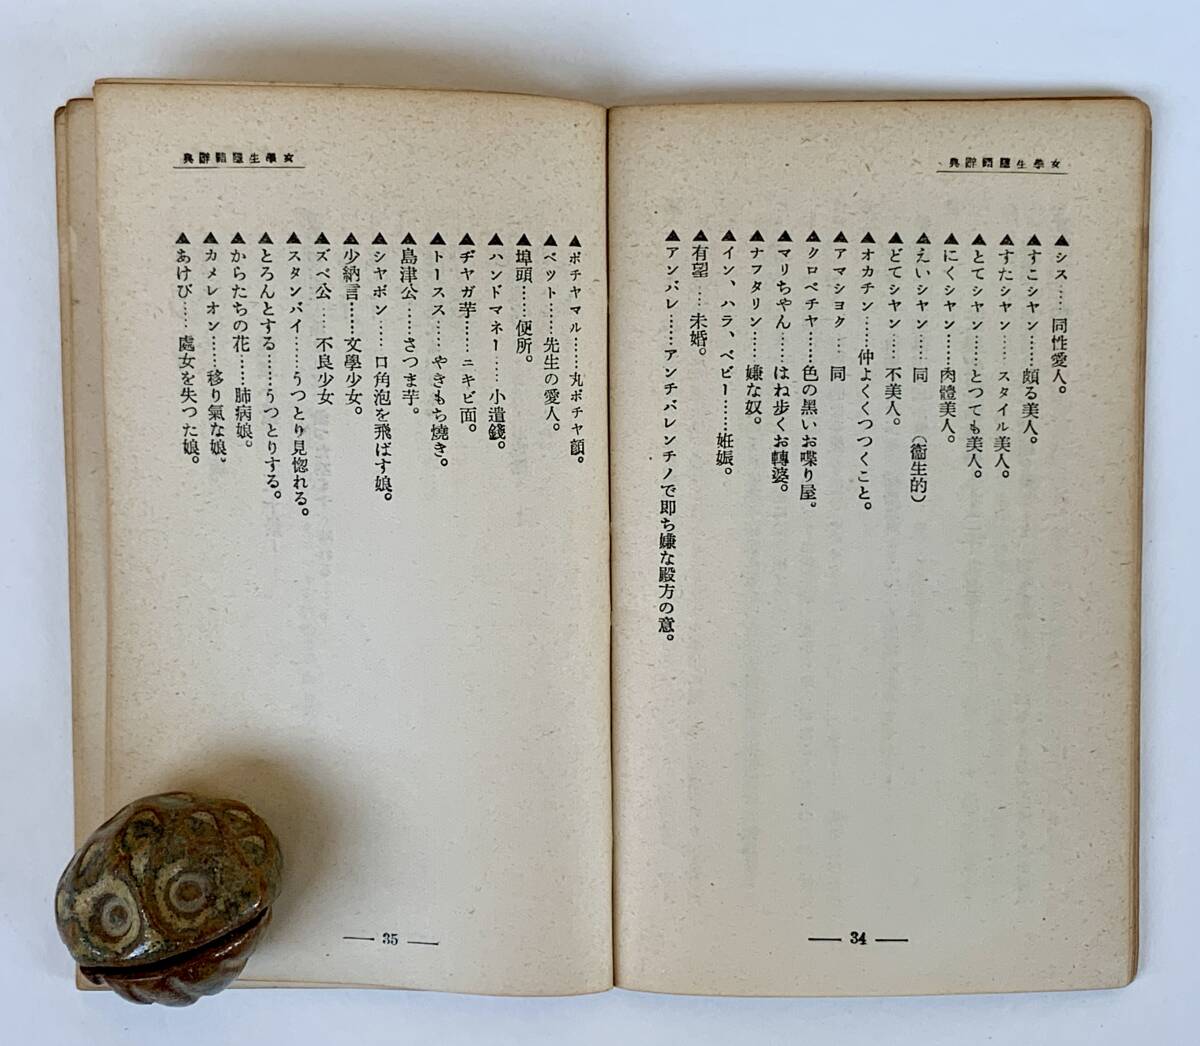 女學生隱語辭典
▲シス……同性愛人。
▲すこシヤン……頗る美人。
▲すたシヤン……スタイル美人。
▲とてシヤン……とつても美人。
▲にくシヤン……肉體美人。
▲えいシヤン……同　(衞生的)
▲どてシヤン……不美人。
▲オカチン……仲よくくつつくこと。
▲アマシヨク……同
▲クロペチヤ……色の黑いお喋り屋。
▲マリちやん……はね步くお轉婆。
▲ナフタリン……嫌な奴。
▲イン、ハラ、ベビー……姙娠。
▲有望……未婚。
▲アンバレ……アンチバレンチノで卽ち嫌な殿方の意。
34
女學生隱語辭典
▲ボチヤマル……丸ボチヤ顔。
▲ペツト……先生の愛人。
▲埠頭……便所。
▲ハンドマネー……小遣錢。
▲ヂヤガ芋……ニキビ面。
▲トースス……やきもち燒き。
▲島津公……さつま芋。
▲シヤボン……口角泡を飛ばす娘。
▲少納言……文學少女。
▲ズベ公……不良少女
▲スタンバイ……うつとり見惚れる。
▲とろんとする……うつとりする。
▲からたちの花……肺病娘。
▲カメレオン……移り氣な娘。
▲あけび……處女を失つた娘。
35